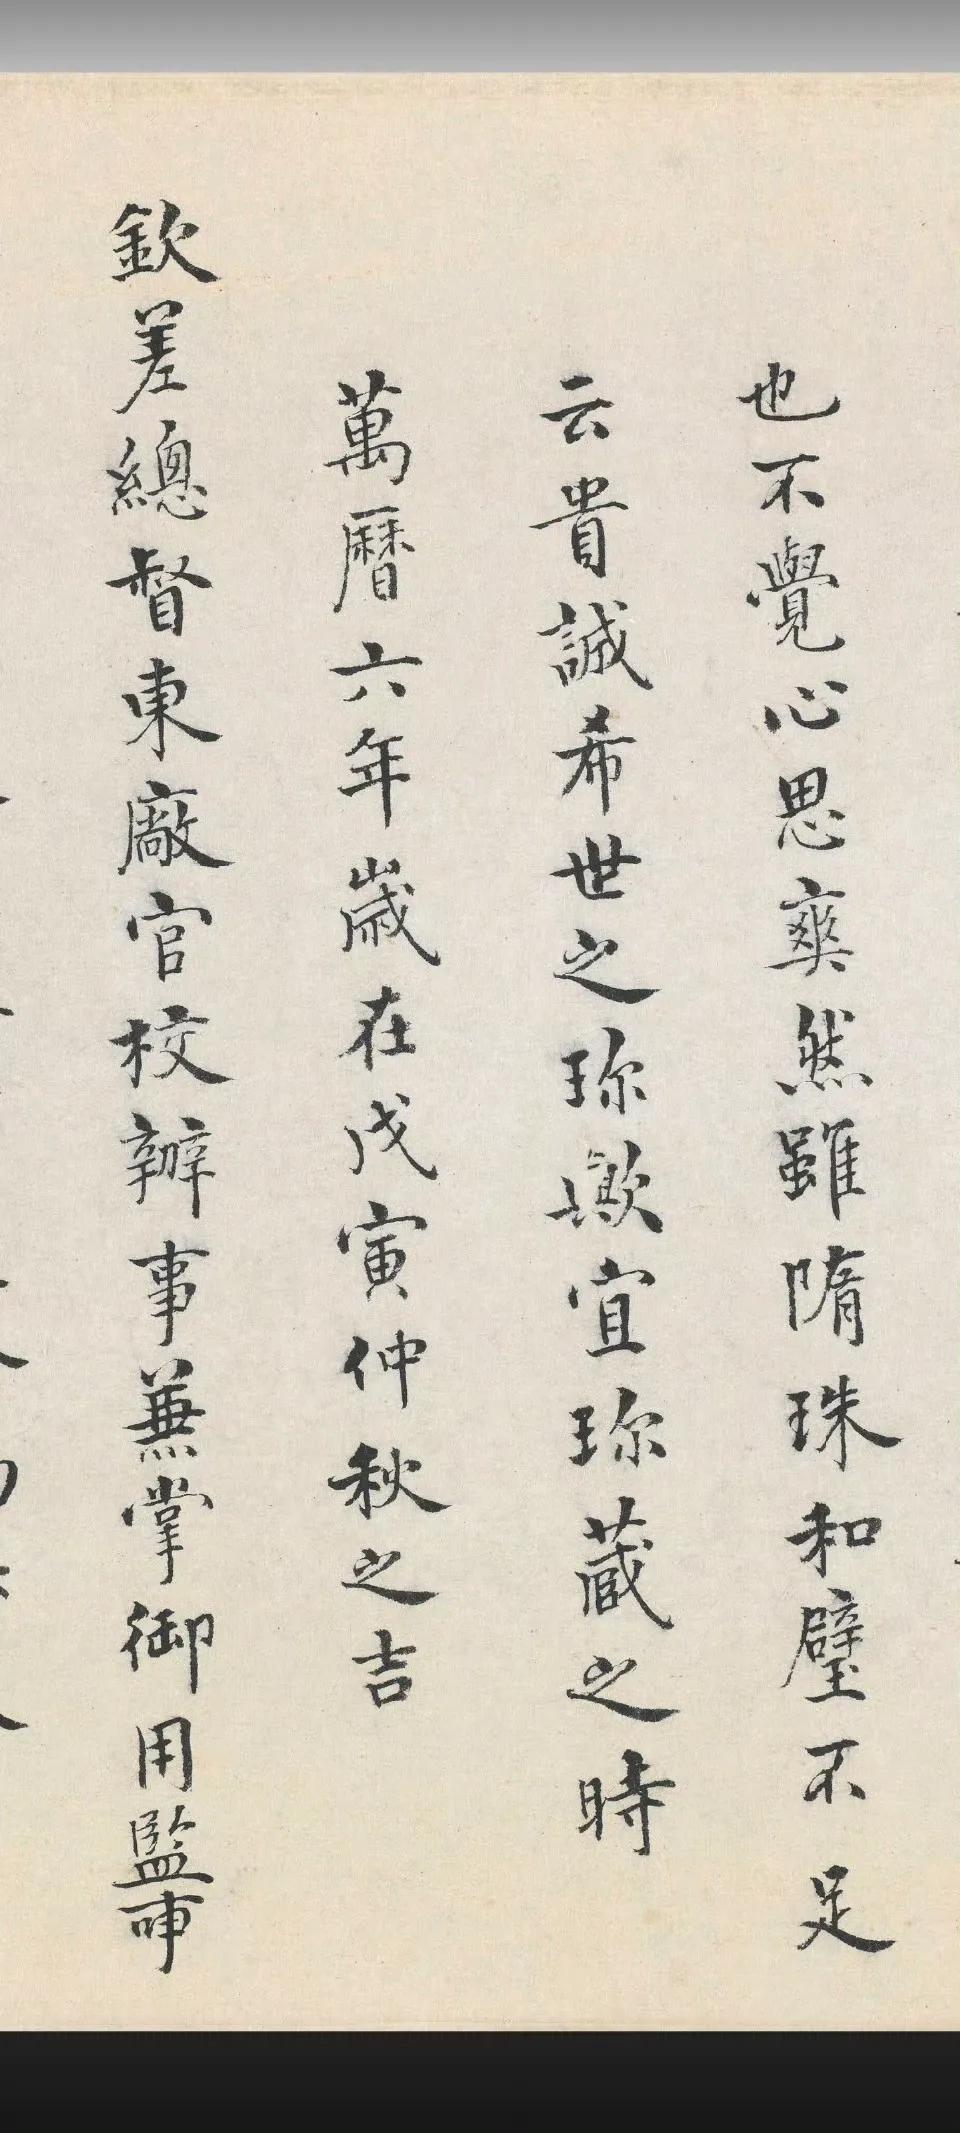 也不覺心思爽然雖隋珠和璧不足
云貴誠希世之珎歟宜珎蔵之時
萬曆六年歲在戊寅仲秋之吉
欽差總督東廠官校辦事兼掌御用監事